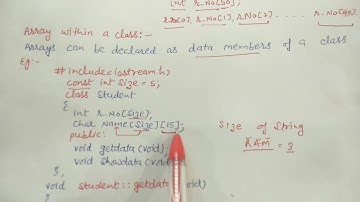 int r_No[50];
r_No[0], r_No[1], r_No[2] ........ r_No[49].
Array within a class:-
Arrays can be declared as data members of a class
Eg:-
#include<iostream.h>
const int Size = 5;
class Student
{
int r_No[Size];
Char Name[Size][15];
Size of String
public:
RAM = 3
void getdata(void);
void showdata(void
};
void student::getdata(void)
{